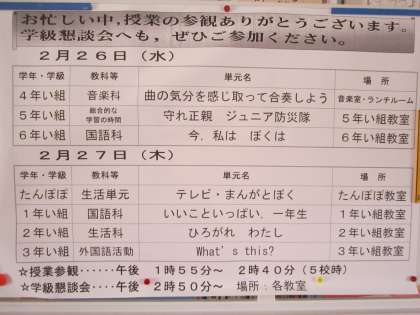 お忙しい中,授業の参観ありがとうございます。
学級懇談会へも,ぜひご参加ください。
2月26日(水)
学年・学級 教科等 単元名 場 所
4年い組 音楽科 曲の気分を感じ取って合奏しよう 音楽室・ランチルーム
5年い組 総合的な学習の時間 守れ正親 ジュニア防災隊 5年い組教室
6年い組 国語科 今,私は ぼくは 6年い組教室
2月27日(木)
学年・学級 教科等 単元名 場 所
たんぽぽ 生活単元 テレビ・まんがとぼく たんぽぽ教室
1年い組 国語科 いいこといっぱい,一年生 1年い組教室
2年い組 生活科 ひろがれ わたし 2年い組教室
3年い組 外国語活動 What's this? 3年い組教室
☆授業参観‥‥‥午後 1時55分~ 2時40分(5校時)
☆学級懇談会‥‥午後 2時50分~ 場所:各教室